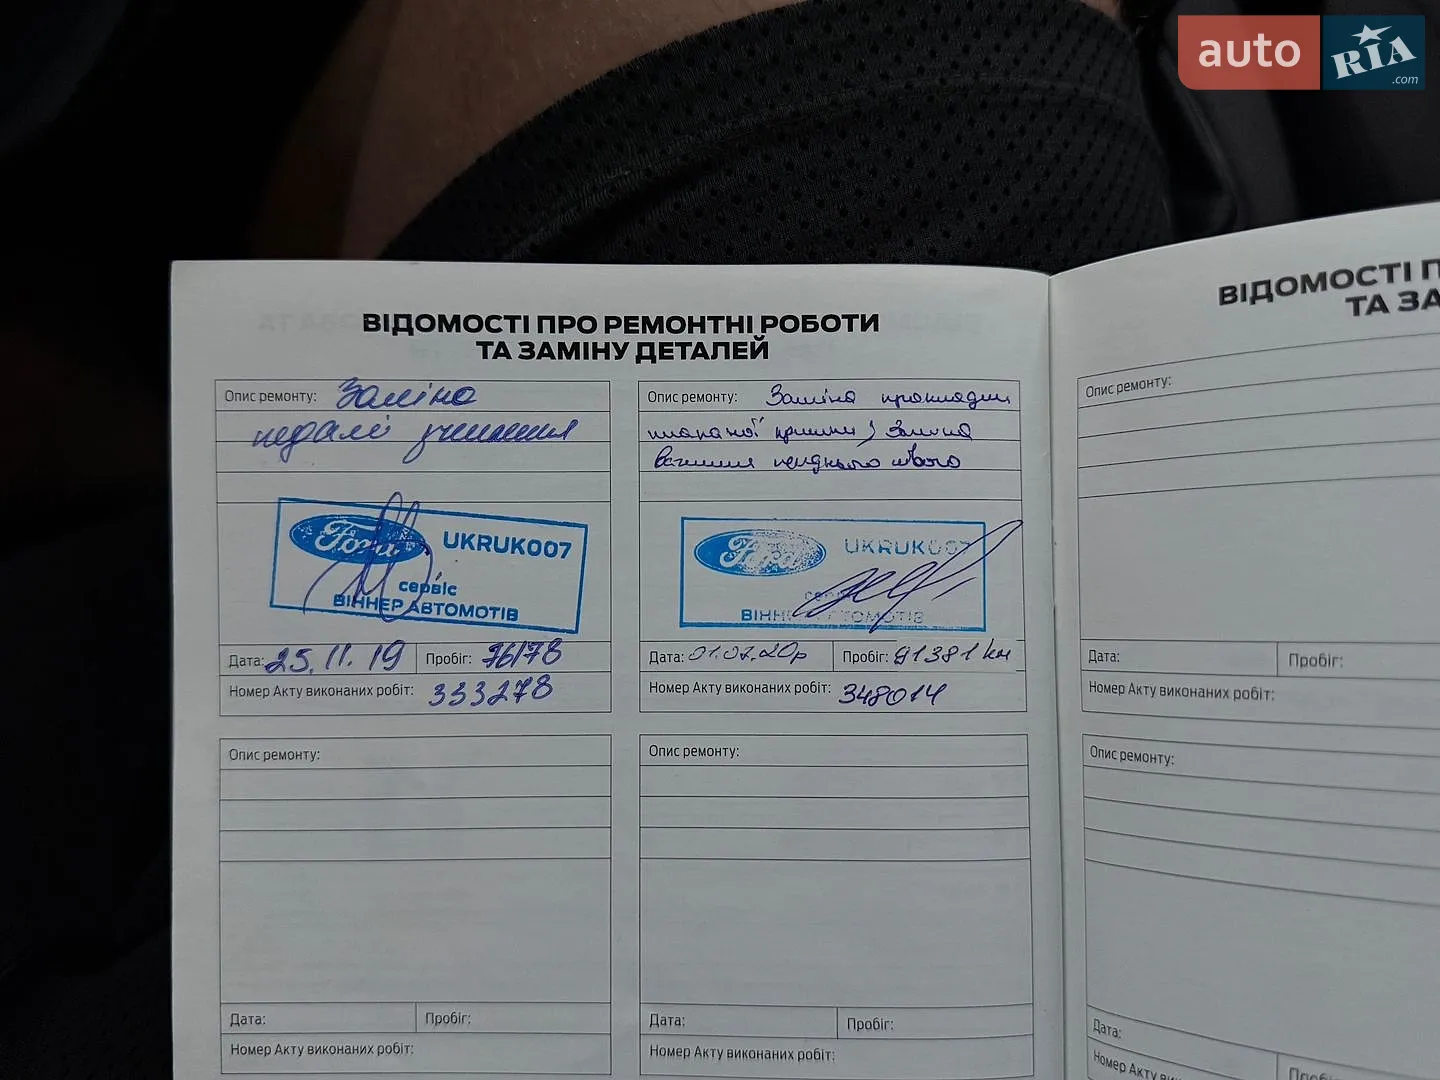 auto RIA .com
ВІДОМОСТІ ПРО РЕМОНТНІ РОБОТИ
ТА ЗАМІНУ ДЕТАЛЕЙ
Опис ремонту: Заміна
педалі зчеплення
Ford UKRUK007
сервіс
ВІННЕР АВТОМОТІВ
Дата: 25.11.19 Пробіг: 76178
Номер Акту виконаних робіт: 333278
Опис ремонту: Заміна прокладки
клапаної кришки, Заміна
Ford UKRUK007
ВІННЕР АВТОМОТІВ
Дата: 01.07.20р Пробіг: 91381 км
Номер Акту виконаних робіт: 348014
Опис ремонту:
Дата: Пробіг:
Номер Акту виконаних робіт:
Опис ремонту:
Дата: Пробіг:
Номер Акту виконаних робіт:
ВІДОМОСТІ П
ТА ЗА
Опис ремонту:
Дата: Пробіг:
Номер Акту виконаних робіт:
Опис ремонту:
Дата: Пробіг:
Номер Акту виконаних робіт: